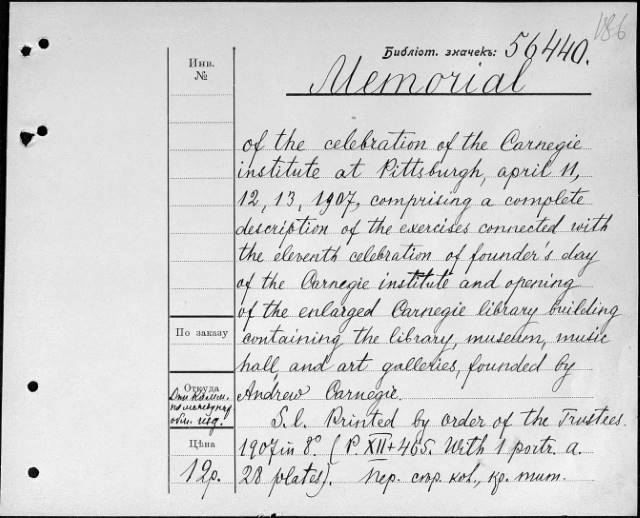 186
Библіот. значекъ: 56440.
Инв.
№
Memorial
of the celebration of the Carnegie
institute at Pittsburgh, april 11,
12, 13, 1907, comprising a complete
description of the exercises connected with
the eleventh celebration of founder's day
of the Carnegie institute and opening
of the enlarged Carnegie library building
По заказу
containing the library, museum, music
hall, and art galleries, founded by
Откуда
Andrew Carnegie.
обм. изд.
S. l. Printed by order of the Trustees.
Цѣна
1907 in 8°. (P. XII+465. With 1 portr. a.
12р.
28 plates). Пер. сѣр. кол., кр. тит.